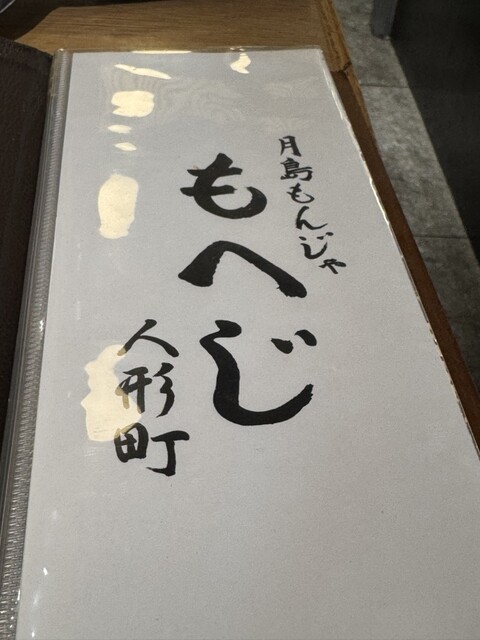 月島もんじゃ
もへじ
人形町